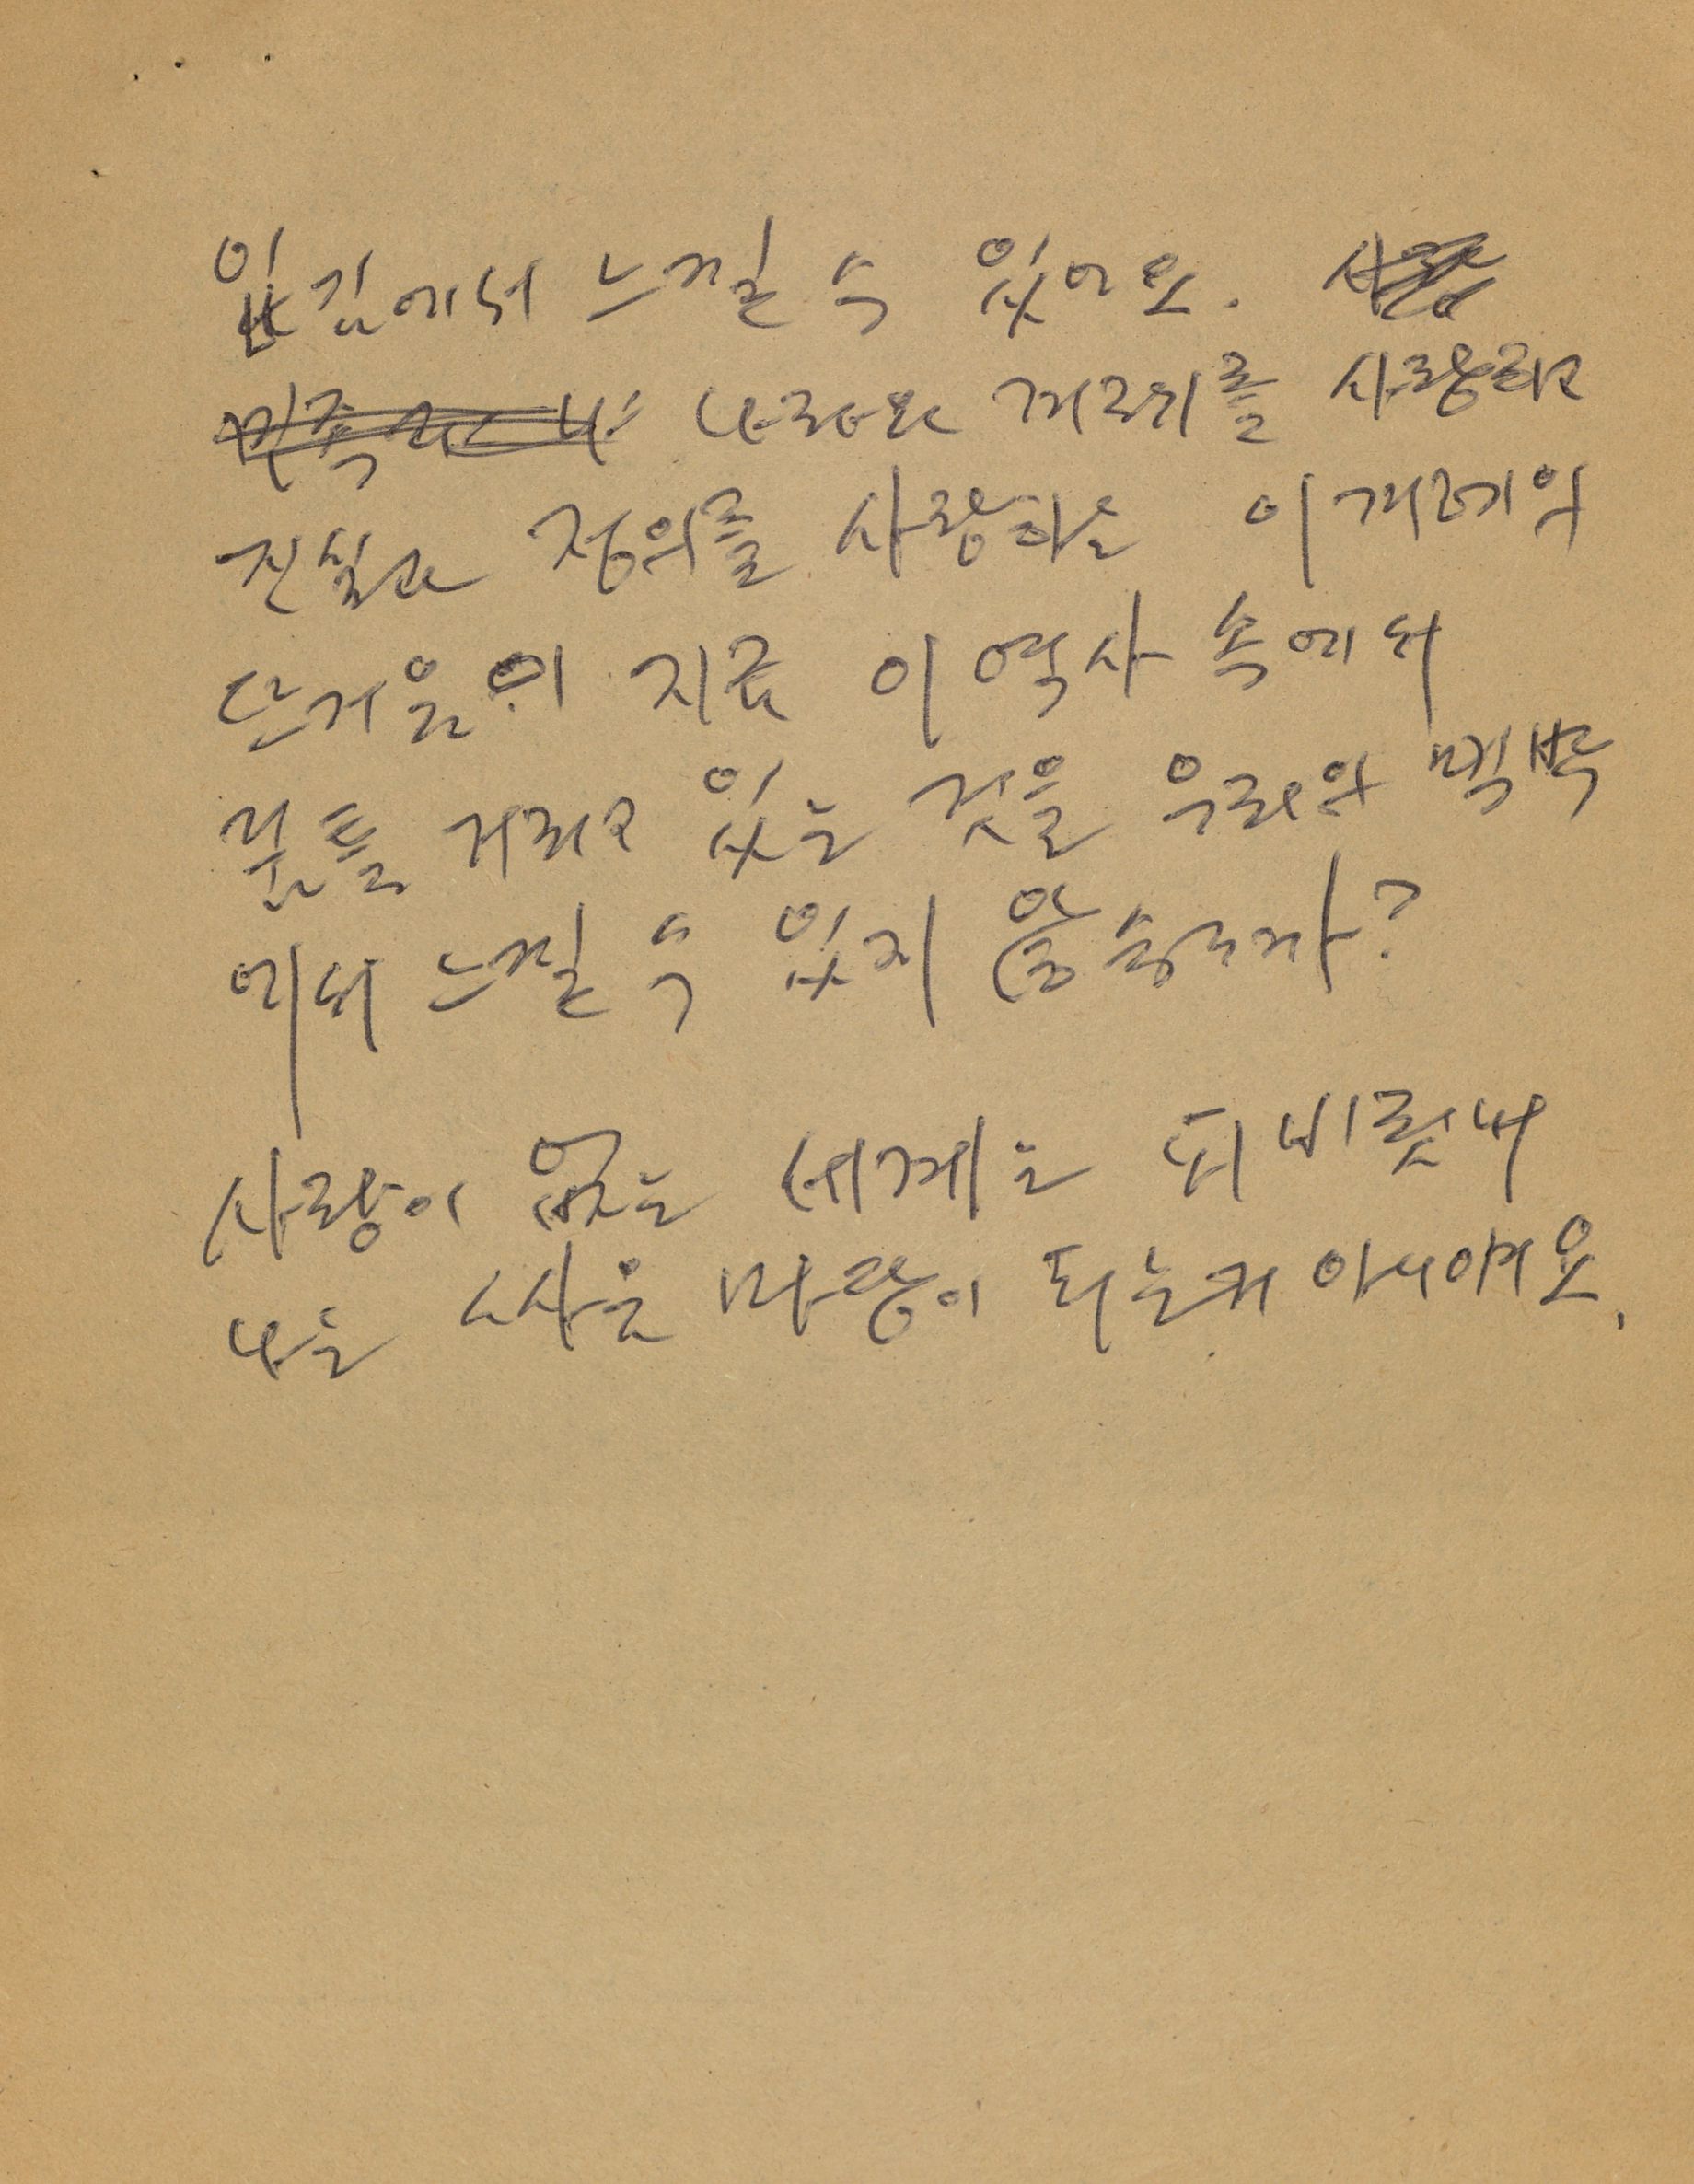 입김에서 느낄 수 있어요.
나라와 겨레를 사랑하고
진실과 정의를 사랑하는 이 겨레의
뜨거움이 지금 이 역사 속에서
꿈틀거리고 있는 것을 우리의 맥박
에서 느낄 수 있지 않습니까?
사랑이 없는 세계는 피비린내
나는 싸움 마당이 되는거 아니예요.